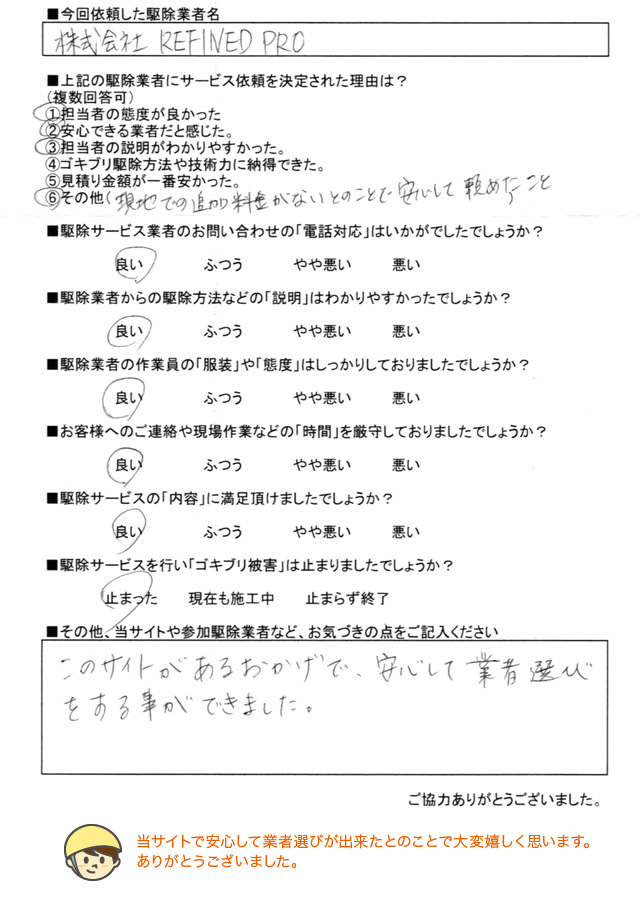 ■今回依頼した駆除業者名
株式会社 REFINED PRO
■上記の駆除業者にサービス依頼を決定された理由は？
(複数回答可)
①担当者の態度が良かった
②安心できる業者だと感じた。
③担当者の説明がわかりやすかった。
④ゴキブリ駆除方法や技術力に納得できた。
⑤見積り金額が一番安かった。
⑥その他(現地での追加料金がないとのことで安心して頼めたこと
■駆除サービス業者のお問い合わせの「電話対応」はいかがでしたでしょうか？
良い ふつう やや悪い 悪い
■駆除業者からの駆除方法などの「説明」はわかりやすかったでしょうか？
良い ふつう やや悪い 悪い
■駆除業者の作業員の「服装」や「態度」はしっかりしておりましたでしょうか？
良い ふつう やや悪い 悪い
■お客様へのご連絡や現場作業などの「時間」を厳守しておりましたでしょうか？
良い ふつう やや悪い 悪い
■駆除サービスの「内容」に満足頂けましたでしょうか？
良い ふつう やや悪い 悪い
■駆除サービスを行い「ゴキブリ被害」は止まりましたでしょうか？
止まった 現在も施工中 止まらず終了
■その他、当サイトや参加駆除業者など、お気づきの点をご記入ください
このサイトがあるおかげで、安心して業者選び
をする事ができました。
ご協力ありがとうございました。
当サイトで安心して業者選びが出来たとのことで大変嬉しく思います。
ありがとうございました。